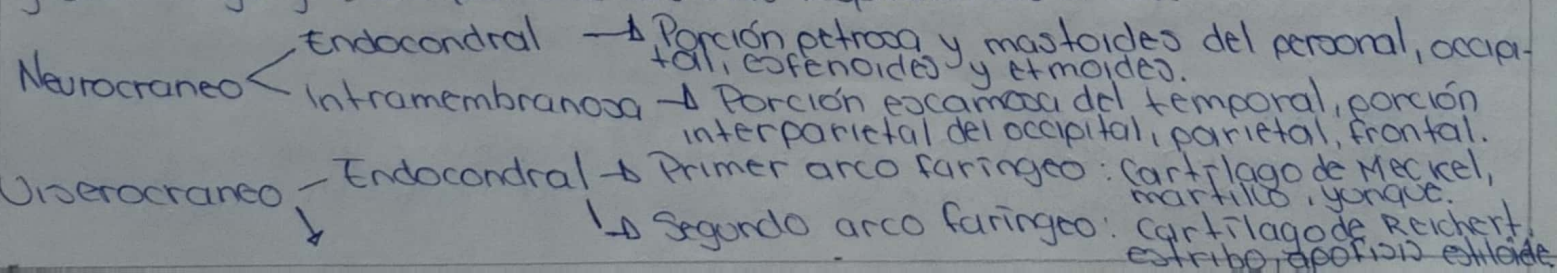 Neurocraneo < Endocondral → Porción petrosa y mastoides del personal, occipi-
tal, esfenoides y etmoides.
Intramembranosa → Porción escamosa del temporal, porción
interparietal del occipital, parietal, frontal.
Viserocraneo - Endocondral → Primer arco faríngeo: Cartílago de Meckel,
martillo, yunque.
↳ Segundo arco faríngeo: Cartílago de Reichert,
estribo, apofisis estiloide